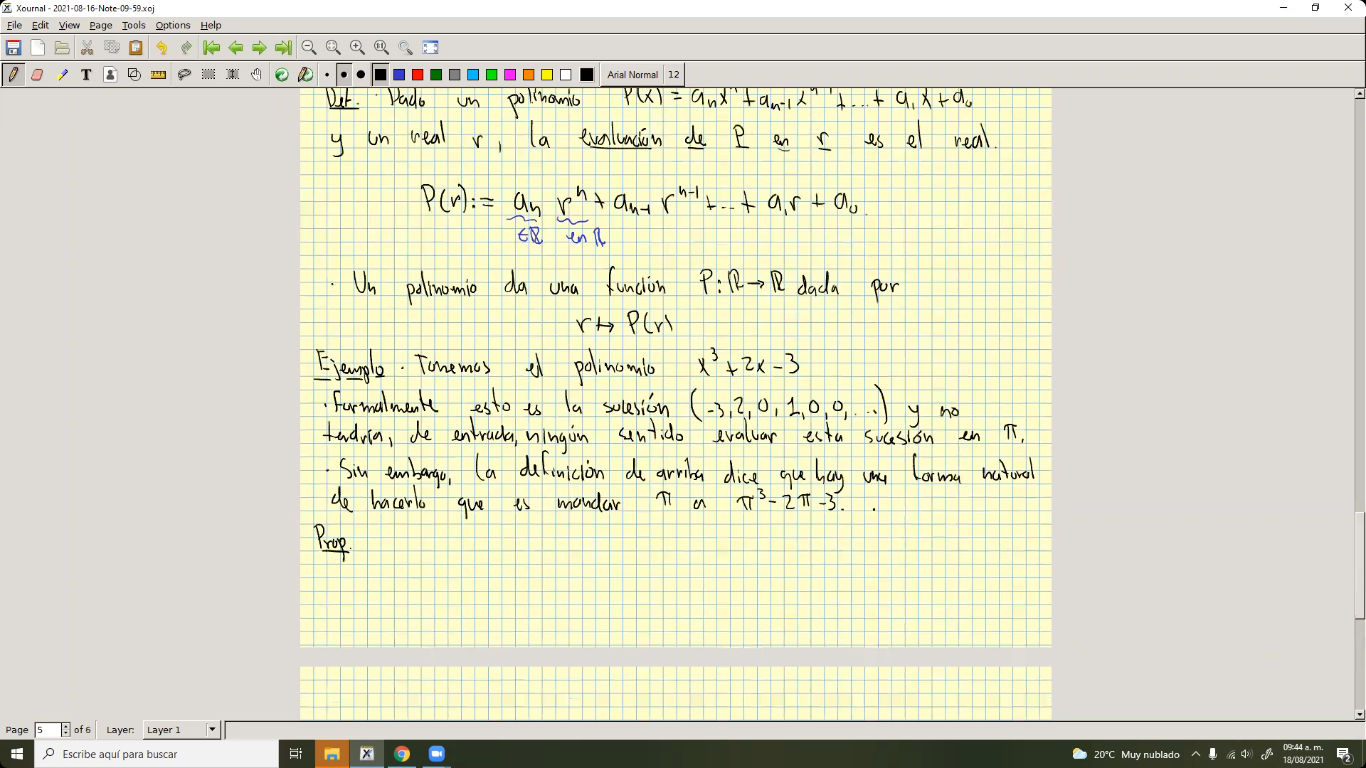 Xournal - 2021-08-16-Note-09-59.xoj
File Edit View Page Tools Options Help
Arial Normal 12
Def. · Dado un polinomio P(x) = aₙxⁿ + aₙ₋₁xⁿ⁻¹ + ... + a₁x + a₀
y un real r, la evaluación de P en r es el real.
P(r) := aₙ rⁿ + aₙ₋₁ rⁿ⁻¹ + ... + a₁r + a₀.
∈ℝ en ℝ
· Un polinomio da una función P: ℝ → ℝ dada por
r ↦ P(r)
Ejemplo · Tomemos el polinomio x³ + 2x - 3
· Formalmente esto es la sucesión (-3, 2, 0, 1, 0, 0, ...) y no
tendría, de entrada, ningún sentido evaluar esta sucesión en π.
· Sin embargo, la definición de arriba dice que hay una forma natural
de hacerlo que es mandar π a π³ - 2π - 3. .
Prop.
Page 5 of 6 Layer: Layer 1
Escribe aquí para buscar
20°C Muy nublado
09:44 a. m.
18/08/2021
2